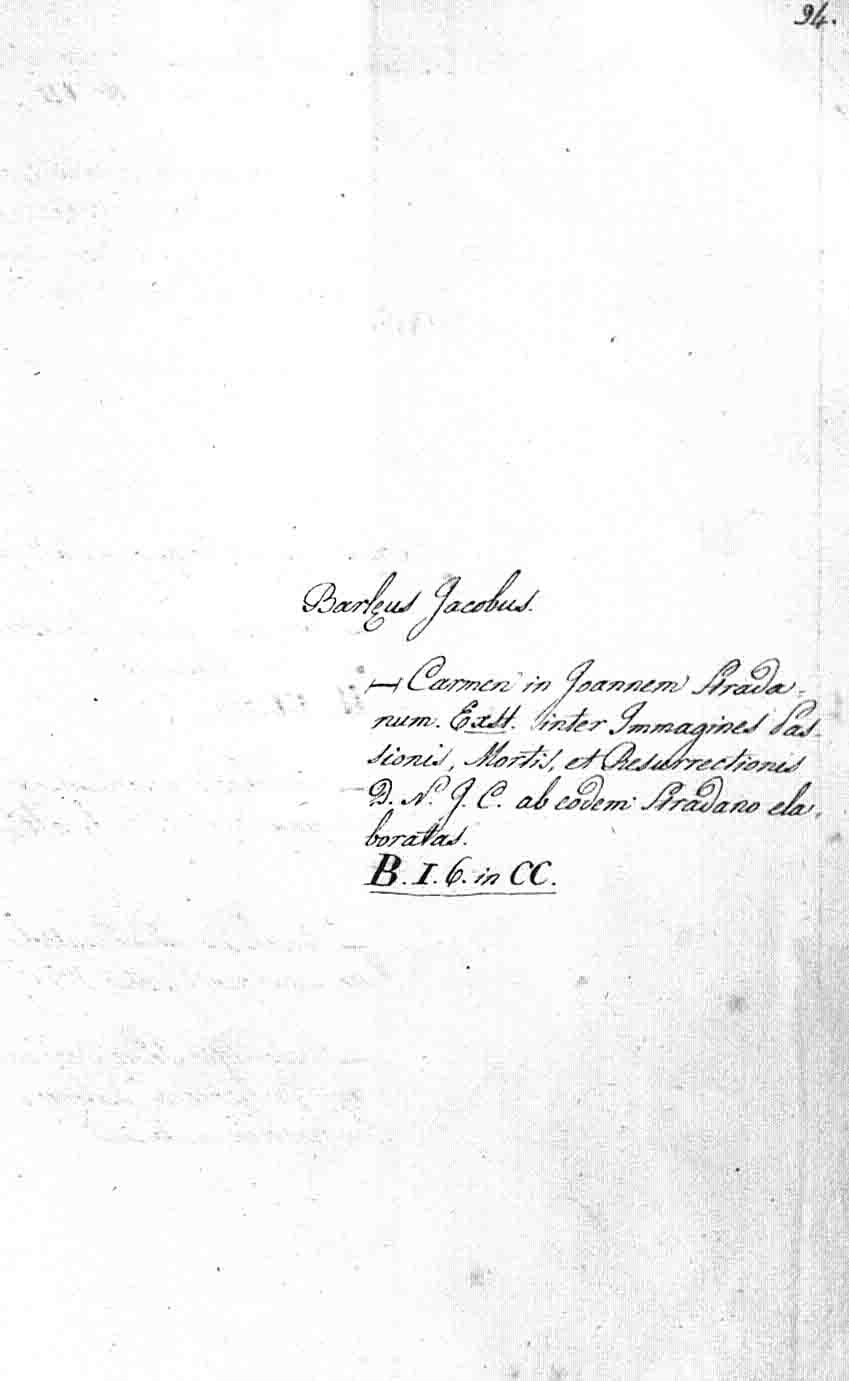 94.
Barlęus Jacobus.
— Carmen in Joannem Strada-
num. Exst. inter Immagines Pas-
sionis, Mortis, et Resurrectionis
D. N. J. C. ab eodem Stradano ela-
boratas.
B. I. 6. in CC.